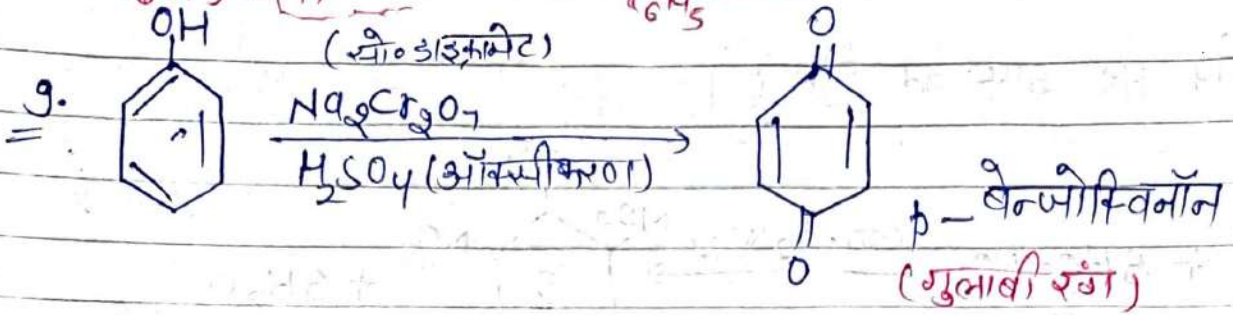 C6H5
OH
(सो० डाइक्रोमेट)
9.
Na2Cr2O7
H2SO4 (ऑक्सीकरण)
O
O
p - बेन्जोक्विनॉन
(गुलाबी रंग)